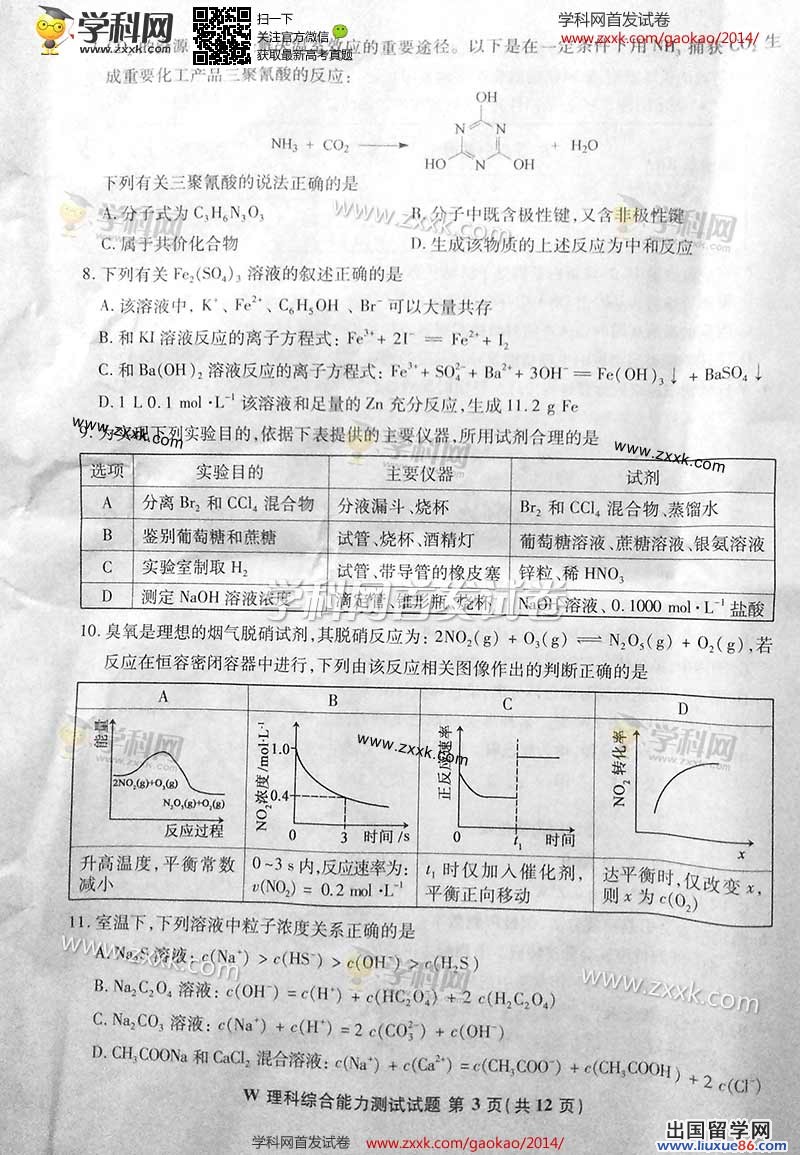 学科网
www.zxxk.com
扫一下
关注官方微信
获取最新高考真题
学科网首发试卷
www.zxxk.com/gaokao/2014/
效应的重要途径。以下是在一定条件下用 NH₃ 捕获 CO₂ 生
成重要化工产品三聚氰酸的反应:
OH
NH₃ + CO₂
N N
N
HO OH
+ H₂O
下列有关三聚氰酸的说法正确的是
A. 分子式为 C₃H₆N₃O₃ B. 分子中既含极性键,又含非极性键
C. 属于共价化合物 D. 生成该物质的上述反应为中和反应
8. 下列有关 Fe₂(SO₄)₃ 溶液的叙述正确的是
A. 该溶液中, K⁺、Fe²⁺、C₆H₅OH 、Br⁻ 可以大量共存
B. 和 KI 溶液反应的离子方程式: Fe³⁺ + 2I⁻ ═ Fe²⁺ + I₂
C. 和 Ba(OH)₂ 溶液反应的离子方程式: Fe³⁺ + SO₄²⁻ + Ba²⁺ + 3OH⁻ ═ Fe(OH)₃↓ + BaSO₄↓
D. 1 L 0.1 mol·L⁻¹ 该溶液和足量的 Zn 充分反应,生成 11.2 g Fe
9. 为实现下列实验目的,依据下表提供的主要仪器,所用试剂合理的是
选项 实验目的 主要仪器 试剂
A 分离 Br₂ 和 CCl₄ 混合物 分液漏斗、烧杯 Br₂ 和 CCl₄ 混合物、蒸馏水
B 鉴别葡萄糖和蔗糖 试管、烧杯、酒精灯 葡萄糖溶液、蔗糖溶液、银氨溶液
C 实验室制取 H₂ 试管、带导管的橡皮塞 锌粒、稀 HNO₃
D 测定 NaOH 溶液浓度 滴定管、锥形瓶、烧杯 NaOH 溶液、0.1000 mol·L⁻¹ 盐酸
学科网首发试卷
10. 臭氧是理想的烟气脱硝试剂,其脱硝反应为: 2NO₂(g) + O₃(g) ⇌ N₂O₅(g) + O₂(g),若
反应在恒容密闭容器中进行,下列由该反应相关图像作出的判断正确的是
A B C D
能量
2NO₂(g)+O₃(g)
N₂O₅(g)+O₂(g)
反应过程
NO₂浓度/mol·L⁻¹
1.0
0.4
0 3 时间/s
正反应速率
0 t₁ 时间
NO₂ 转化率
0 x
升高温度,平衡常数减小
0~3 s 内,反应速率为: v(NO₂) = 0.2 mol·L⁻¹
t₁ 时仅加入催化剂,平衡正向移动
达平衡时,仅改变 x,则 x 为 c(O₂)
11. 室温下,下列溶液中粒子浓度关系正确的是
A. Na₂S 溶液: c(Na⁺) > c(HS⁻) > c(OH⁻) > c(H₂S)
B. Na₂C₂O₄ 溶液: c(OH⁻) = c(H⁺) + c(HC₂O₄⁻) + 2 c(H₂C₂O₄)
C. Na₂CO₃ 溶液: c(Na⁺) + c(H⁺) = 2 c(CO₃²⁻) + c(OH⁻)
D. CH₃COONa 和 CaCl₂ 混合溶液: c(Na⁺) + c(Ca²⁺) = c(CH₃COO⁻) + c(CH₃COOH) + 2 c(Cl⁻)
W 理科综合能力测试试题 第 3 页(共 12 页)
学科网首发试卷
www.zxxk.com/gaokao/2014/
出国留学网
www.liuxue86.com